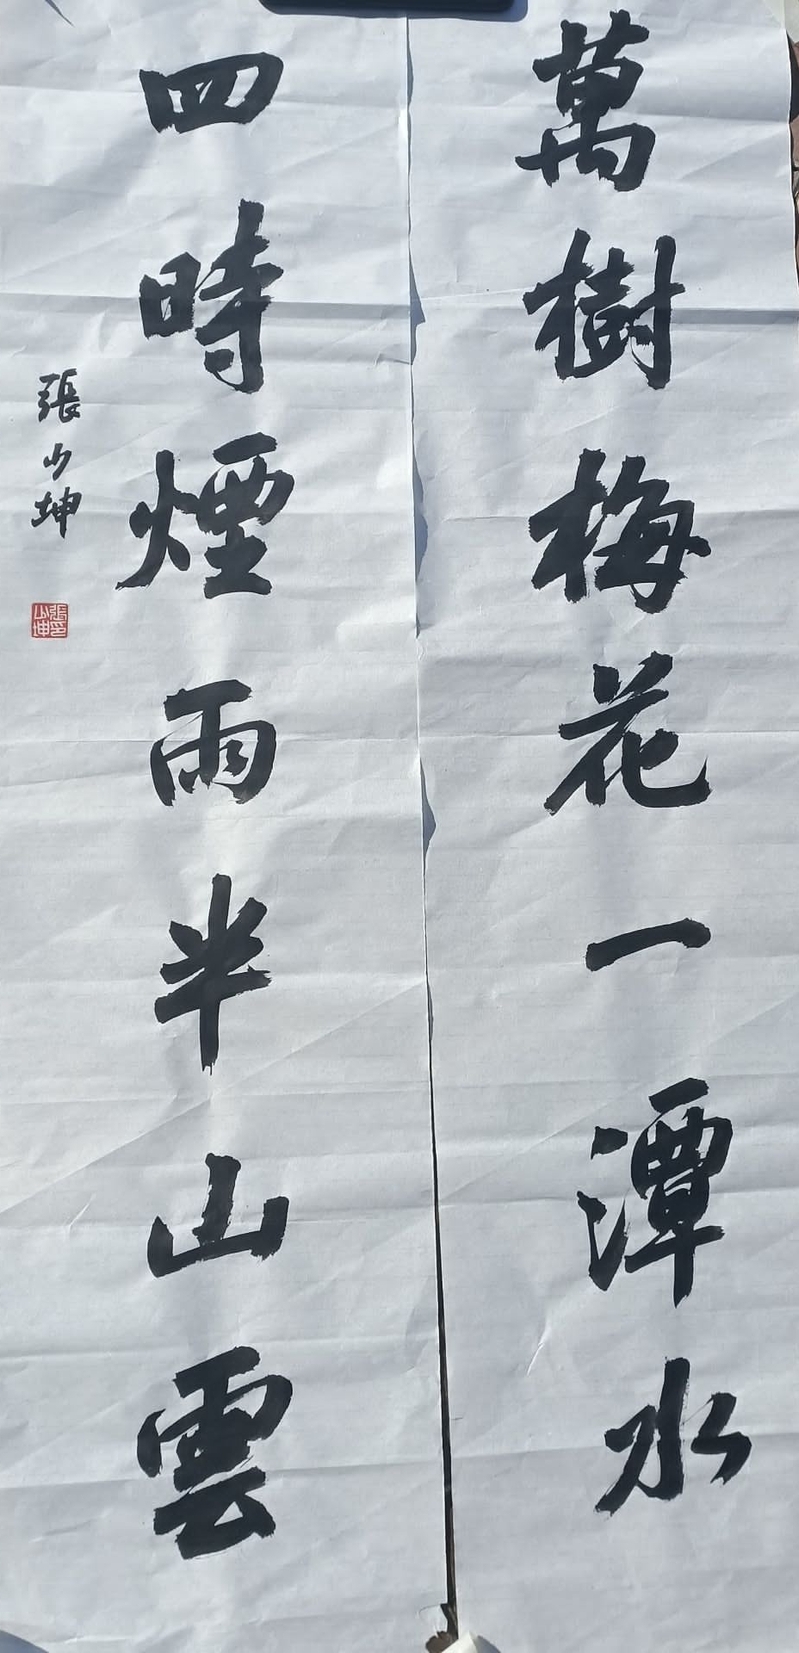 萬樹梅花一潭水
四時煙雨半山雲
張少坤
張少坤印